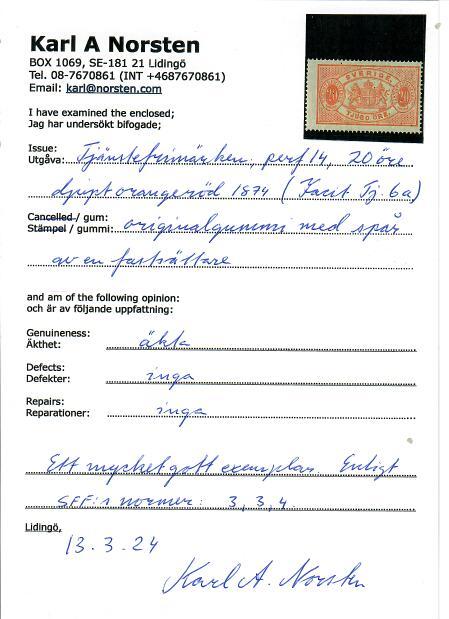 Karl A Norsten
BOX 1069, SE-181 21 Lidingö
Tel. 08-7670861 (INT +4687670861)
Email: karl@norsten.com
SVERIGE
20
20
TJUGO ÖRE
I have examined the enclosed;
Jag har undersökt bifogade;
Issue:
Utgåva: Tjänstefrimärken, perf 14, 20 öre
djupt orangeröd 1874 (Facit Tj. 6a)
Cancelled / gum:
Stämpel / gummi: originalgummi med spår
av en fastsättare
and am of the following opinion:
och är av följande uppfattning:
Genuineness:
Äkthet: äkta
Defects:
Defekter: inga
Repairs:
Reparationer: inga
Ett mycket gott exemplar. Enligt
SFF:s normer: 3, 3, 4
Lidingö,
13.3.24
Karl A. Norsten